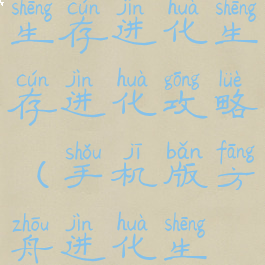 shēng cún jìn huà shēng
生存进化生
cún jìn huà gōng lüè
存进化攻略
shǒu jī bǎn fāng
（手机版方
zhōu jìn huà shēng
舟进化生